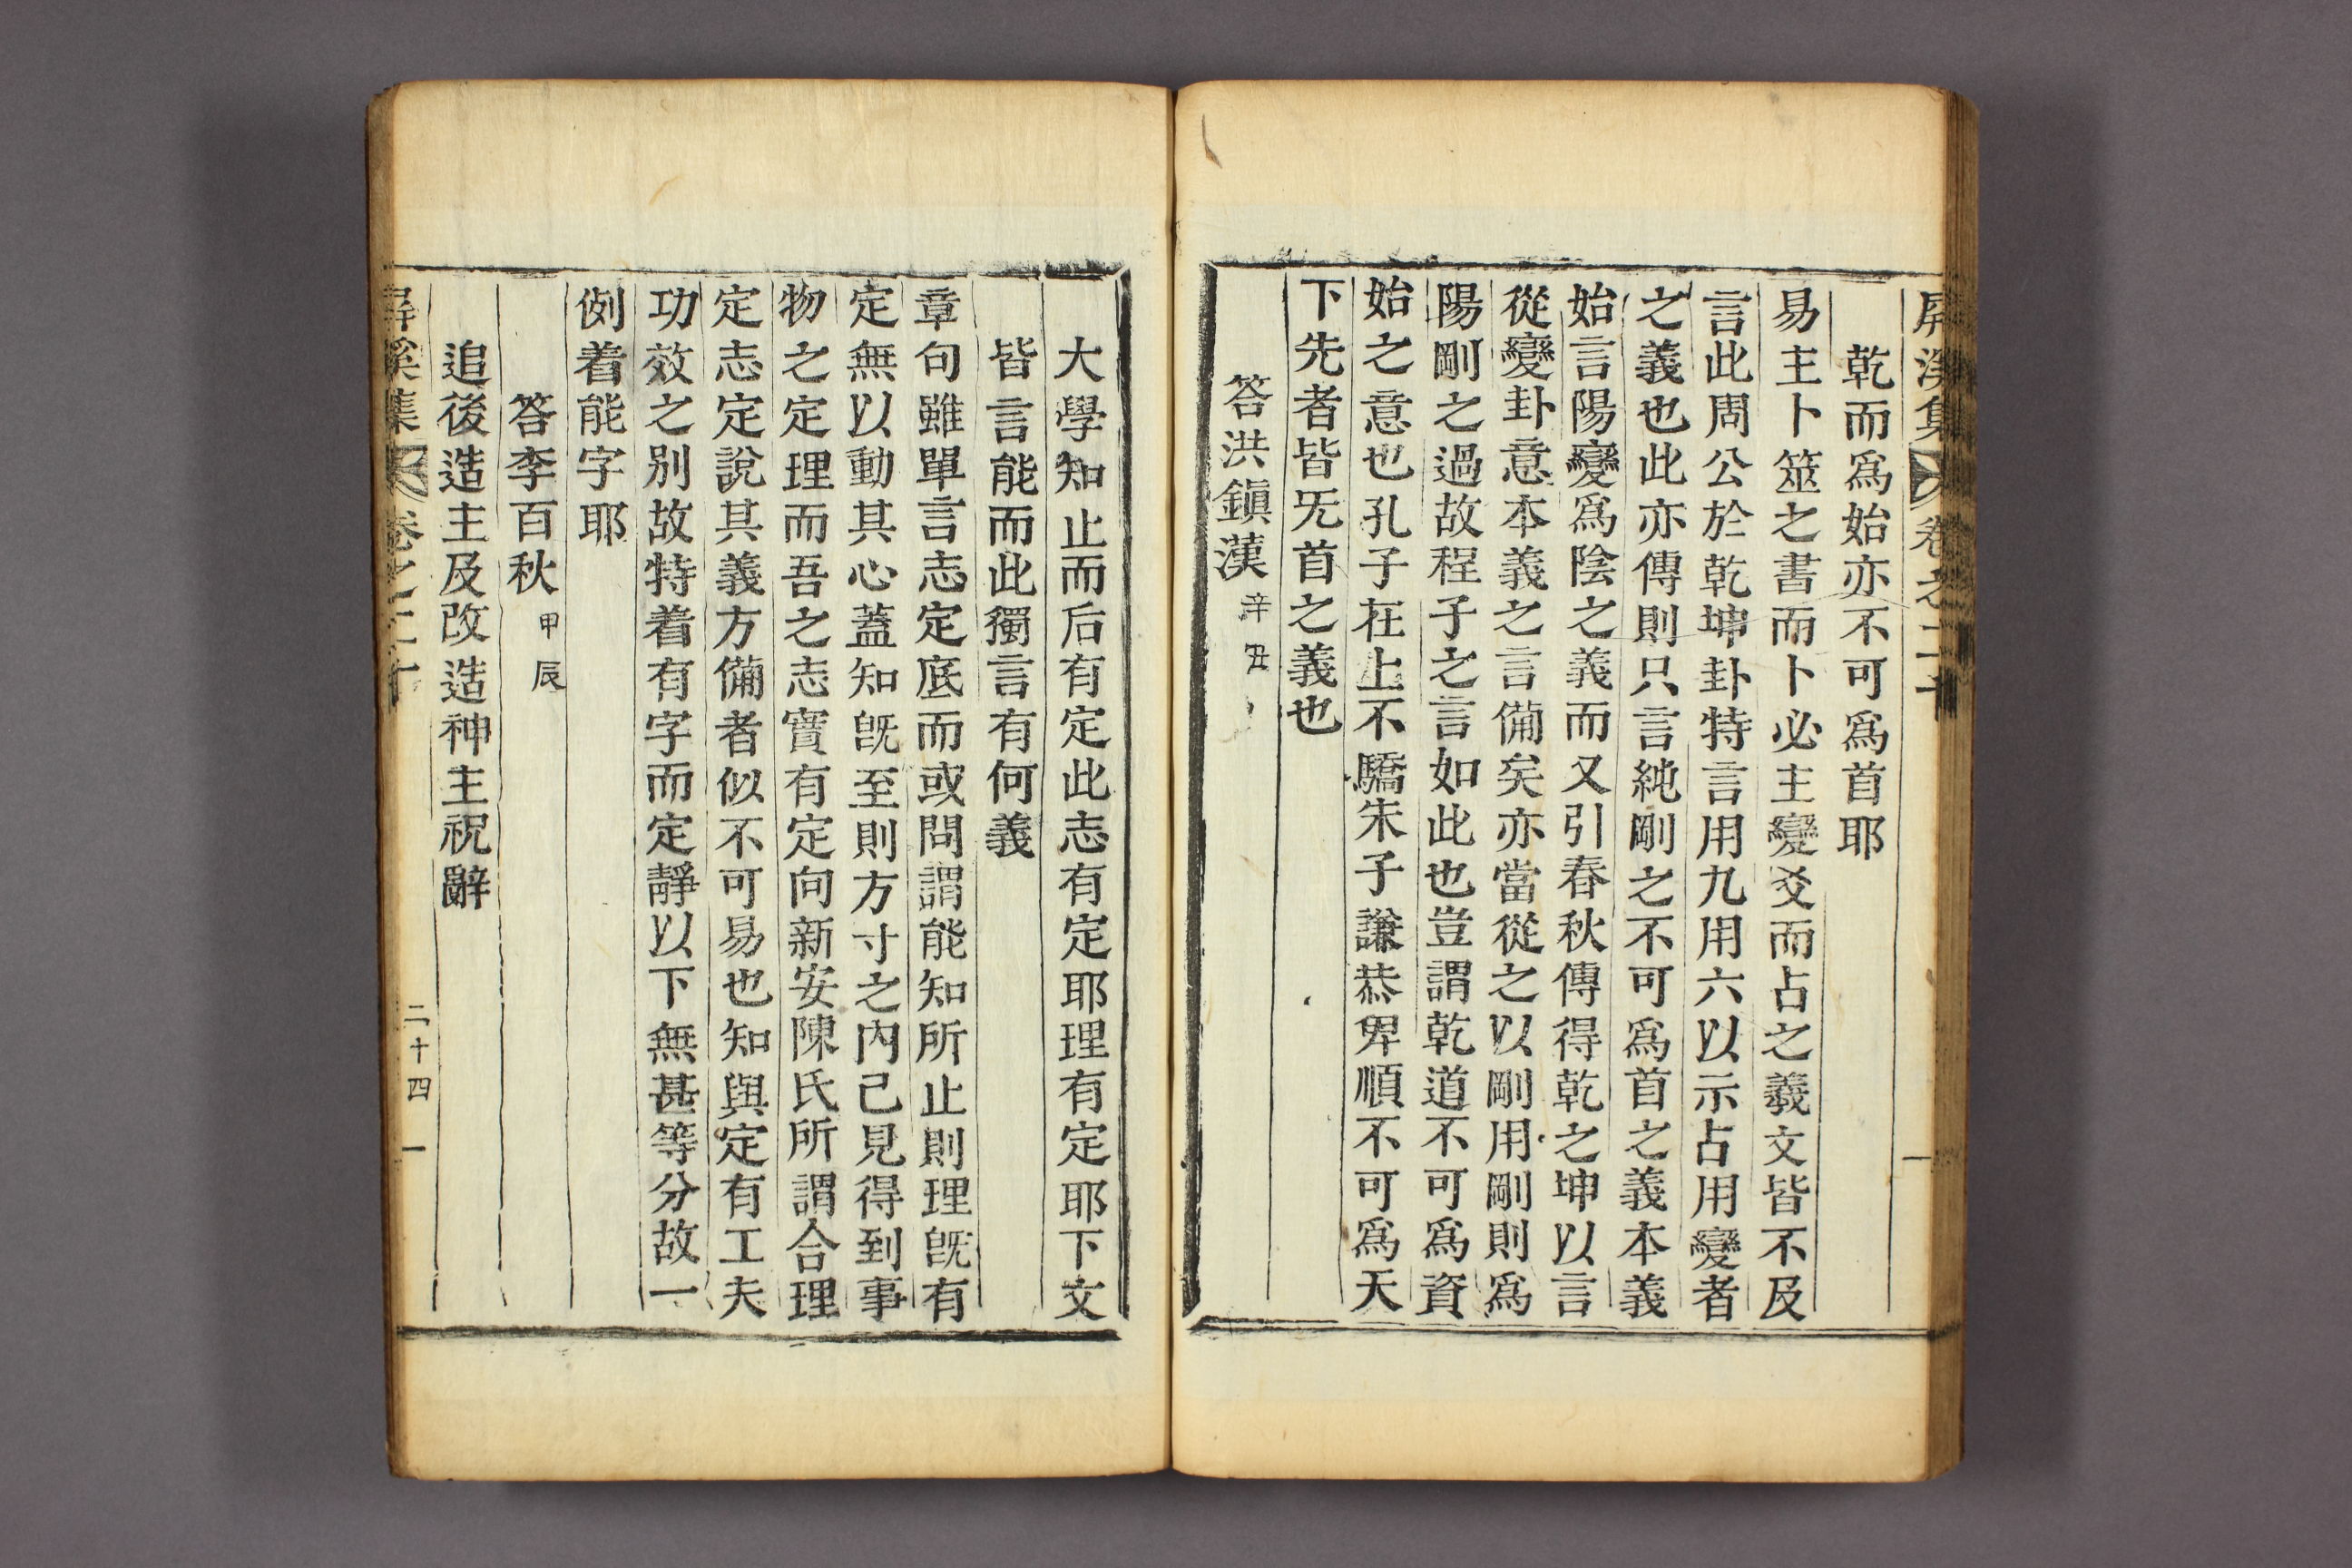 屏溪集 卷之二十
乾而爲始亦不可爲首耶
易主卜筮之書而卜必主變爻而占之羲文皆不及
言此周公於乾坤卦特言用九用六以示占用變者
之義也此亦傳則只言純剛之不可爲首之義本義
始言陽變爲陰之義而又引春秋傳得乾之坤以言
從變卦意本義之言備矣亦當從之以剛用剛則爲
陽剛之過故程子之言如此也豈謂乾道不可爲資
始之意也孔子在上不驕朱子謙恭卑順不可爲天
下先者皆旡首之義也
答洪鎭漢 辛丑
大學知止而后有定此志有定耶理有定耶下文
皆言能而此獨言有何義
章句雖單言志定底而或問謂能知所止則理旣有
定無以動其心蓋知旣至則方寸之內已見得到事
物之定理而吾之志實有定向新安陳氏所謂合理
定志定說其義方備者似不可易也知與定有工夫
功效之別故特着有字而定靜以下無甚等分故一
例着能字耶
答李百秋 甲辰
追後造主及改造神主祝辭
屏溪集 卷之二十 二十四